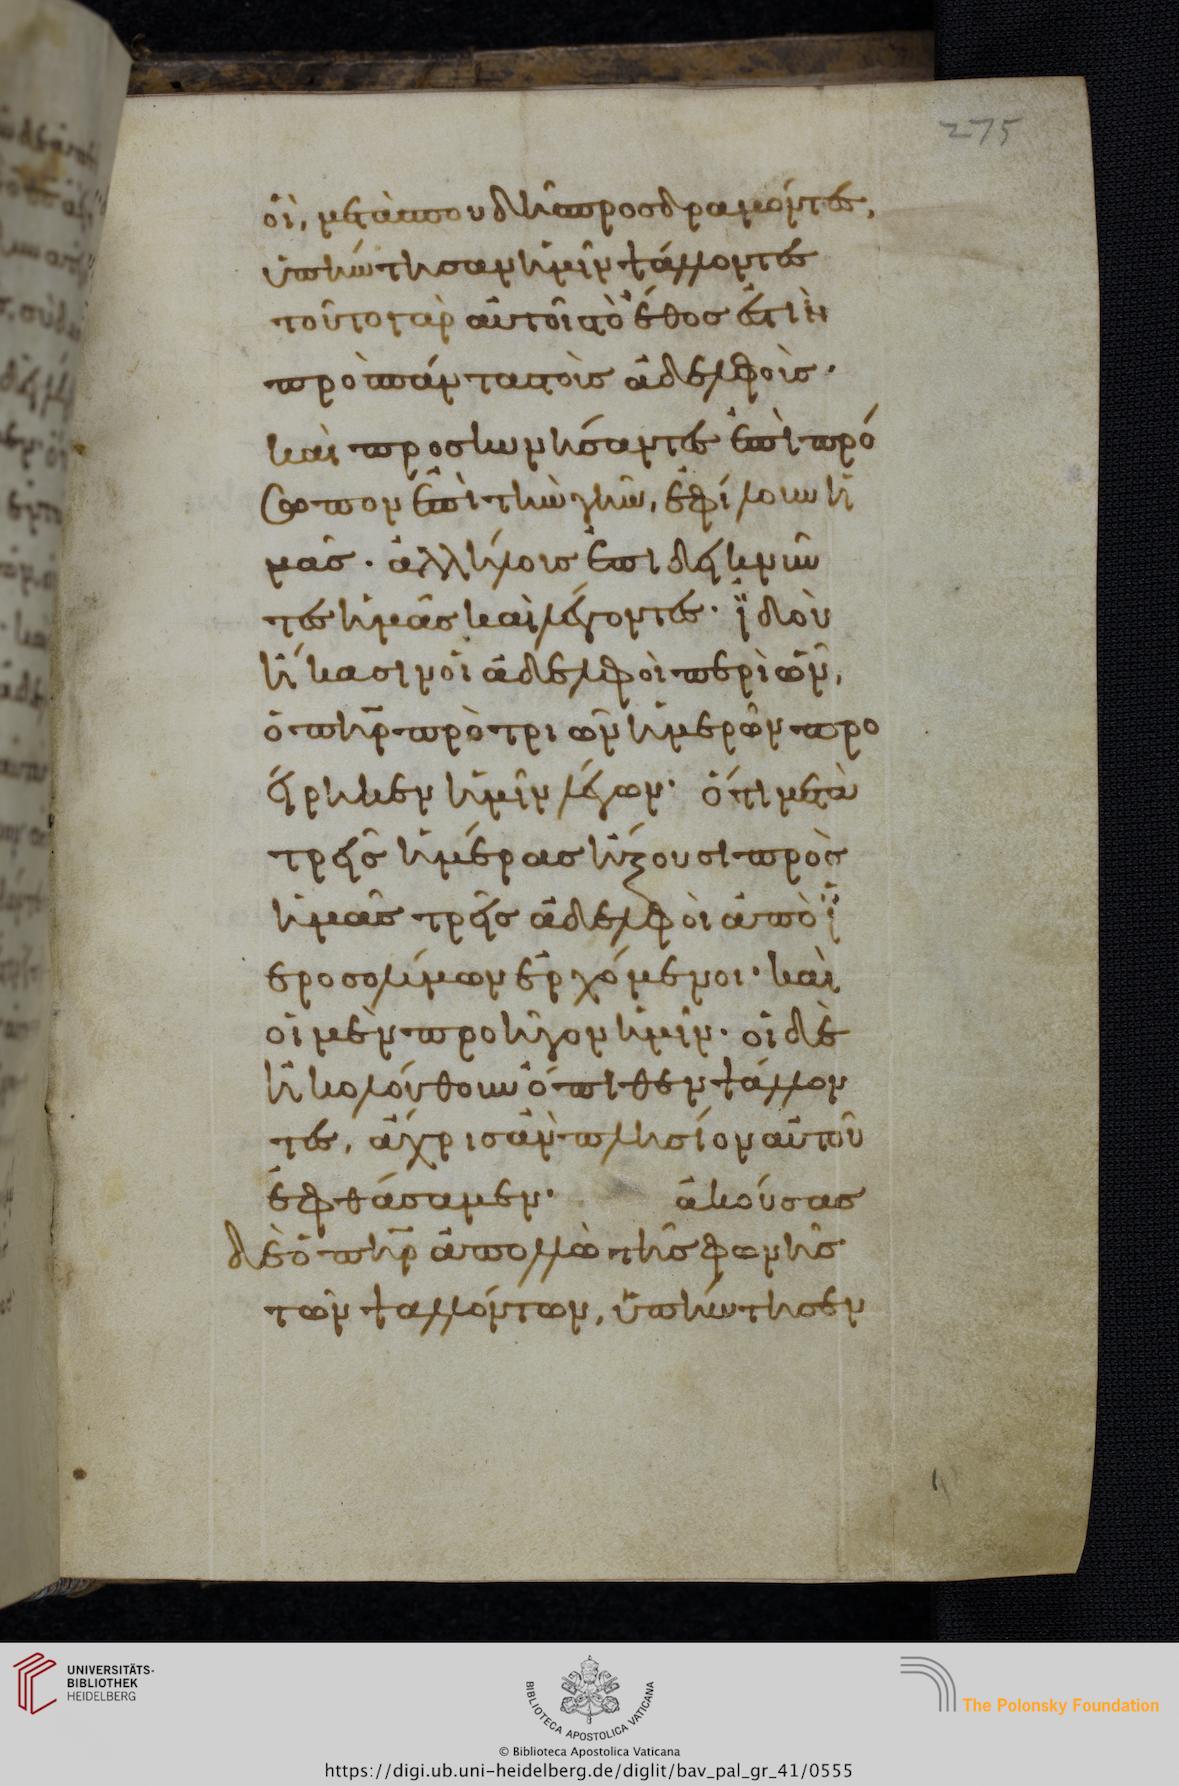 275
οἳ, μετὰ σπουδῆς προσδραμόντες,
ὑπήντησαν ἡμῖν ψάλλοντες
τοῦτο γὰρ αὐτοῖς τὸ ἔθος ἐστὶν
πρὸς πάντας τοὺς ἀδελφούς·
καὶ προσκυνήσαντες ἐπὶ πρό
σωπον ἐπὶ τὴν γῆν, ἐφίλουν ἡ
μᾶς· ἀλλήλοις ἐπιδεικνύν
τες ἡμᾶς καὶ λέγοντες· ἰδοὺ
ἥκασιν οἱ ἀδελφοὶ περὶ ὧν,
ὁ πηρ πρὸ τριῶν ἡμερῶν προ
είρηκεν ἡμῖν λέγων· ὅτι μετὰ
τρεῖς ἡμέρας ἥξουσι πρὸς
ἡμᾶς τρεῖς ἀδελφοὶ ἀπὸ ἱ
εροσολύμων ἐρχόμενοι· καὶ
οἱ μὲν προῆγον ἡμῖν· οἱ δὲ
ἠκολούθουν ὄπιθεν ψάλλον
τες, ἄχρις ἂν πλησίον αὐτοῦ
ἐφθάσαμεν· ἀκούσας
δὲ ὁ πηρ ἀπολλὼ τῆς φωνῆς
τῶν ψαλλόντων, ὑπήντησεν
UNIVERSITÄTS-
BIBLIOTHEK
HEIDELBERG
BIBLIOTECA APOSTOLICA VATICANA
The Polonsky Foundation
© Biblioteca Apostolica Vaticana
https://digi.ub.uni-heidelberg.de/diglit/bav_pal_gr_41/0555